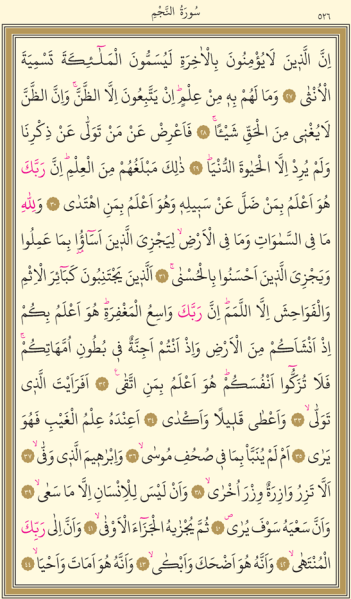 سُورَةُ النَّجْمِ
٥٢٦
اِنَّ الَّذٖينَ لَا يُؤْمِنُونَ بِالْاٰخِرَةِ لَيُسَمُّونَ الْمَلٰٓئِكَةَ تَسْمِيَةَ
الْاُنْثٰى ﴿٢٧﴾ وَمَا لَهُمْ بِهٖ مِنْ عِلْمٍؕ اِنْ يَتَّبِعُونَ اِلَّا الظَّنَّۚ وَاِنَّ الظَّنَّ
لَا يُغْنٖى مِنَ الْحَقِّ شَيْـًٔاۚ ﴿٢٨﴾ فَاَعْرِضْ عَنْ مَنْ تَوَلّٰى عَنْ ذِكْرِنَا
وَلَمْ يُرِدْ اِلَّا الْحَيٰوةَ الدُّنْيَاؕ ﴿٢٩﴾ ذٰلِكَ مَبْلَغُهُمْ مِنَ الْعِلْمِؕ اِنَّ رَبَّكَ
هُوَ اَعْلَمُ بِمَنْ ضَلَّ عَنْ سَبٖيلِهٖ وَهُوَ اَعْلَمُ بِمَنِ اهْتَدٰى ﴿٣٠﴾ وَلِلّٰهِ
مَا فِى السَّمٰوَاتِ وَمَا فِى الْاَرْضِۙ لِيَجْزِىَ الَّذٖينَ اَسَٓاؤُ۫ا بِمَا عَمِلُوا
وَيَجْزِىَ الَّذٖينَ اَحْسَنُوا بِالْحُسْنٰىۚ ﴿٣١﴾ اَلَّذٖينَ يَجْتَنِبُونَ كَبَٓائِرَ الْاِثْمِ
وَالْفَوَاحِشَ اِلَّا اللَّمَمَؕ اِنَّ رَبَّكَ وَاسِعُ الْمَغْفِرَةِؕ هُوَ اَعْلَمُ بِكُمْ
اِذْ اَنْشَاَكُمْ مِنَ الْاَرْضِ وَاِذْ اَنْتُمْ اَجِنَّةٌ فٖى بُطُونِ اُمَّهَاتِكُمْۚ
فَلَا تُزَكُّٓوا اَنْفُسَكُمْؕ هُوَ اَعْلَمُ بِمَنِ اتَّقٰىۚ ﴿٣٢﴾ اَفَرَاَيْتَ الَّذٖى
تَوَلّٰىۙ ﴿٣٣﴾ وَاَعْطٰى قَلٖيلًا وَاَكْدٰى ﴿٣٤﴾ اَعِنْدَهُ عِلْمُ الْغَيْبِ فَهُوَ
يَرٰى ﴿٣٥﴾ اَمْ لَمْ يُنَبَّأْ بِمَا فٖى صُحُفِ مُوسٰىۙ ﴿٣٦﴾ وَاِبْرٰهٖيمَ الَّذٖى وَفّٰىۙ ﴿٣٧﴾
اَلَّا تَزِرُ وَازِرَةٌ وِزْرَ اُخْرٰىۙ ﴿٣٨﴾ وَاَنْ لَيْسَ لِلْاِنْسَانِ اِلَّا مَا سَعٰىۙ ﴿٣٩﴾
وَاَنَّ سَعْيَهُ سَوْفَ يُرٰىࣕ ﴿٤٠﴾ ثُمَّ يُجْزٰيهُ الْجَزَٓاءَ الْاَوْفٰىۙ ﴿٤١﴾ وَاَنَّ اِلٰى رَبِّكَ
الْمُنْتَهٰىۙ ﴿٤٢﴾ وَاَنَّهُ هُوَ اَضْحَكَ وَاَبْكٰىۙ ﴿٤٣﴾ وَاَنَّهُ هُوَ اَمَاتَ وَاَحْيَاۙ ﴿٤٤﴾